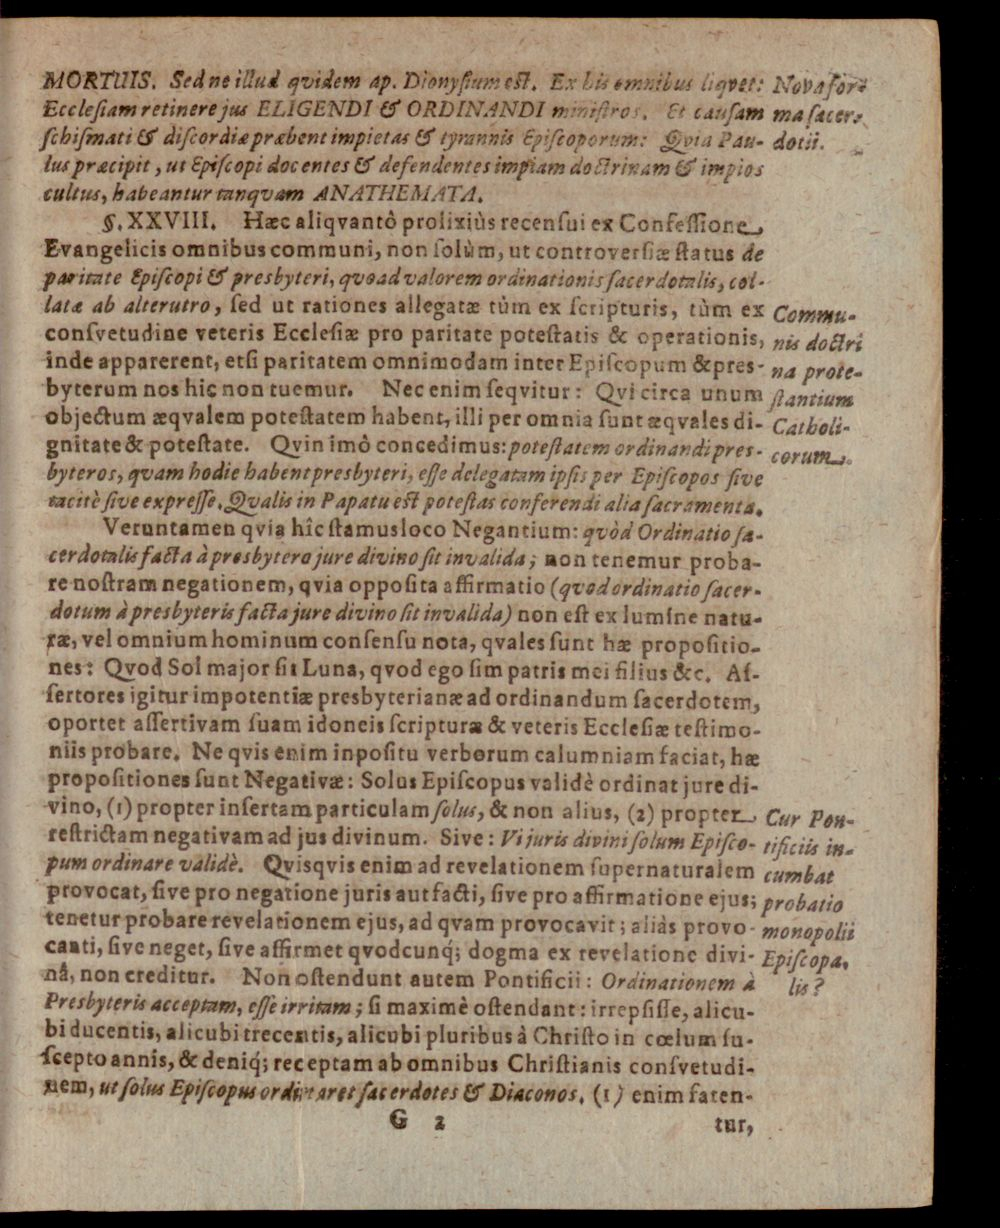 MORTUIS. Sed ne illud qvidem ap. Dionysium est. Ex his omnibus liqvet:
Ecclesiam retinere jus ELIGENDI & ORDINANDI ministros. Et causam
schismati & discordiæ præbent impietas & tyrannis Episcoporum: Qvia Pau-
lus præcipit, ut Episcopi docentes & defendentes impiam doctrinam & impios
cultus, habeantur tanqvam ANATHEMATA.
Nova for-
ma sacer-
dotii.
§. XXVIII. Hæc aliqvantô prolixiùs recensui ex Confessione
Evangelicis omnibus communi, non solùm, ut controversiæ status de
paritate Episcopi & presbyteri, qvoad valorem ordinationis sacerdotalis, col-
latæ ab alterutro, sed ut rationes allegatæ tùm ex scripturis, tùm ex
consvetudine veteris Ecclesiæ pro paritate potestatis & operationis,
inde apparerent, etsi paritatem omnimodam inter Episcopum & pres-
byterum nos hic non tuemur. Nec enim seqvitur: Qvi circa unum
objectum æqvalem potestatem habent, illi per omnia sunt æqvales di-
gnitate & potestate. Qvin imô concedimus: potestatem ordinandi pres-
byteros, qvam hodie habent presbyteri, esse delegatam ipsis per Episcopos sive
tacitè sive expresse. Qvalis in Papatu est potestas conferendi alia sacramenta.
Commu-
nis doctri
na prote-
stantium
Catholi-
corum.
Veruntamen qvia hîc stamus loco Negantium: qvòd Ordinatio sa-
cerdotalis facta à presbytero jure divino sit invalida; non tenemur proba-
re nostram negationem, qvia opposita affirmatio (qvod ordinatio sacer-
dotum à presbyteris facta jure divino sit invalida) non est ex lumine natu-
ræ, vel omnium hominum consensu nota, qvales sunt hæ propositio-
nes: Qvod Sol major sit Luna, qvod ego sim patris mei filius &c. As-
sertores igitur impotentiæ presbyterianæ ad ordinandum sacerdotem,
oportet assertivam suam idoneis scripturæ & veteris Ecclesiæ testimo-
niis probare. Ne qvis enim in positu verborum calumniam faciat, hæ
propositiones sunt Negativæ: Solus Episcopus validè ordinat jure di-
vino, (1) propter insertam particulam solus, & non alius, (2) propter
restrictam negativam ad jus divinum. Sive: Vi juris divini solum Episco-
pum ordinare validè. Qvisqvis enim ad revelationem supernaturalem
provocat, sive pro negatione juris aut facti, sive pro affirmatione ejus;
tenetur probare revelationem ejus, ad qvam provocavit; aliàs provo-
canti, sive neget, sive affirmet qvodcunq́; dogma ex revelatione divi-
nâ, non creditur. Non ostendunt autem Pontificii: Ordinationem à
Presbyteris acceptam, esse irritam; si maximè ostendant: irrepsisse, alicu-
bi ducentis, alicubi trecentis, alicubi pluribus à Christo in cœlum su-
scepto annis, & deniq́; receptam ab omnibus Christianis consvetudi-
nem, ut solus Episcopus ordinaret sacerdotes & Diaconos. (1) enim faten-
Cur Pon-
tificiis in-
cumbat
probatio
monopolii
Episcopa-
lis?
G 2
tur,